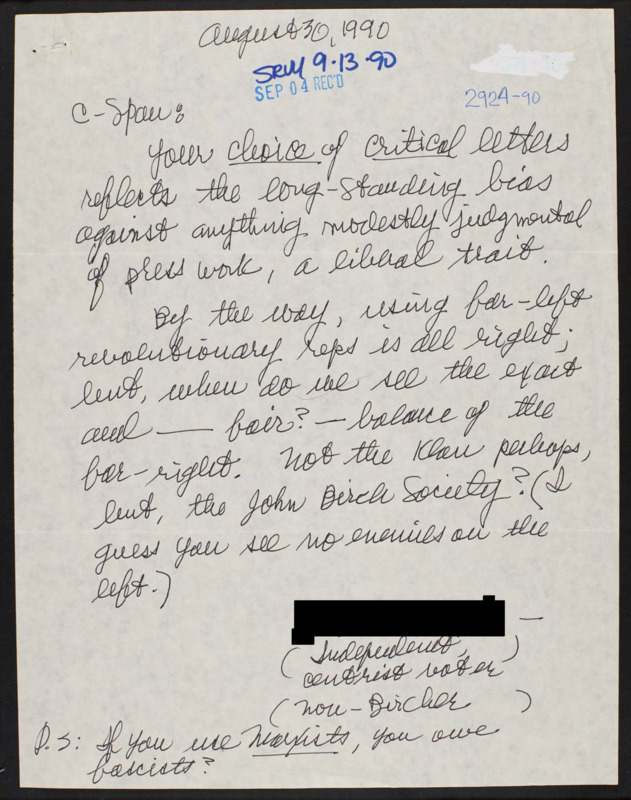 August 30, 1990
SRM 9·13·90
SEP 04 REC'D
2924-90
C-Span:
Your choice of critical letters
reflects the long-standing bias
against anything modestly judgmental
of press work, a liberal trait.
By the way, using far-left
revolutionary reps is all right;
but, when do we see the exact
and — fair? — balance of the
far-right. Not the Klan perhaps,
but, the John Birch Society? (I
guess you see no enemies on the
left.)
(Independent,)
centrist voter
(non-Bircher)
P.S: If you use Marxists, you owe
fascists?